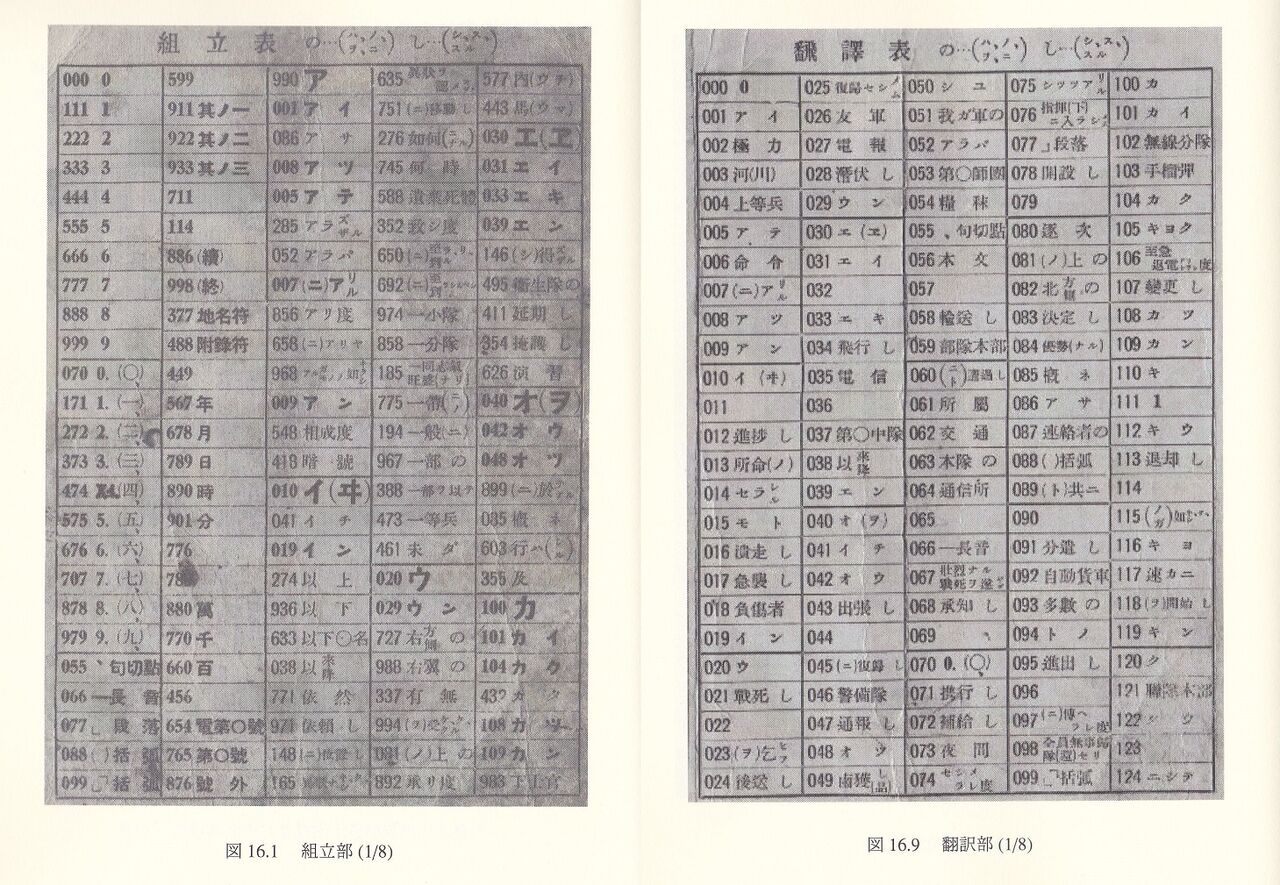 組立表 の…(ハ、ノ、ヲ、ニ) し…(シ、ス、スル)
000 0 599 990 ア 635 577 內(ウチ)
111 1 911 其ノ一 001 アイ 751 (ニ) し 443 馬(ウマ)
222 2 922 其ノ二 086 アサ 276 如何 030 エ(ヱ)
333 3 933 其ノ三 008 アツ 745 何時 031 エイ
444 4 711 005 アテ 588 遺棄死體 033 エキ
555 5 114 285 アラズ ザル 352 致シ度 039 エン
666 6 886 (續) 052 アラバ 650 (ニ) 146 (シ)得
777 7 998 (終) 007 (ニ)アリ ル 692 (ニ) 495 衞生隊の
888 8 377 地名符 856 アリ度 974 一小隊 411 延期し
999 9 488 附錄符 658 (ニ)アリヤ 858 一分隊 354 掩護し
070 0.(〇) 449 968 185 一同志氣旺盛(ナリ) 626 演習
171 1.(一) 567 年 009 アン 775 一帶 040 オ(ヲ)
272 2.(二) 678 月 548 相成度 194 一般(ニ) 042 オウ
373 3.(三) 789 日 418 暗號 967 一部の 048 オツ
474 4.(四) 890 時 010 イ(ヰ) 388 一部ヲ以テ 899 (ニ)於
575 5.(五) 901 分 041 イチ 473 一等兵 085 檢ネ
676 6.(六) 776 019 イン 461 未ダ 603 行
707 7.(七) 274 以上 020 ウ 355 及
878 8.(八) 880 萬 936 以下 029 ウン 100 カ
979 9.(九) 770 千 633 以下〇名 727 右方側の 101 カイ
055 、句切點 660 百 038 以來降 988 右翼の 104 カク
066 一長音 456 771 依然 337 有無 432 カク
077 」段落 654 電第〇號 971 依頼し 994 108 カツ
088 ( )括弧 765 第〇號 148 (ニ) し 081 (ノ)上の 109 カン
099 「」括弧 876 號外 165 892 承リ度 983 下士官
図 16.1 組立部 (1/8)
飜譯表 の…(ハ、ノ、ヲ、ニ) し…(シ、ス、スル)
000 0 025 復歸セシメ ム 050 シユ 075 シツツアリ ル 100 カ
001 アイ 026 友軍 051 我ガ軍の 076 指揮(下)ニ入ラシ 101 カイ
002 極力 027 電報 052 アラバ 077 」段落 102 無線分隊
003 河(川) 028 潛伏し 053 第〇師團 078 開設し 103 手榴彈
004 上等兵 029 ウン 054 糧秣 079 104 カク
005 アテ 030 エ(ヱ) 055 、句切點 080 逐次 105 キヨク
006 命令 031 エイ 056 本文 081 (ノ)上の 106 至急返電 度
007 (ニ)アリ ル 032 057 082 北方側の 107 變更し
008 アツ 033 エキ 058 輸送し 083 決定し 108 カツ
009 アン 034 飛行し 059 部隊本部 084 優勢(ナル) 109 カン
010 イ(ヰ) 035 電信 060 (ニ ト)遭遇し 085 檢ネ 110 キ
011 036 061 所屬 086 アサ 111 1
012 進捗し 037 第〇中隊 062 交通 087 連絡者の 112 キウ
013 所命(ノ) 038 以來降 063 本隊の 088 ( )括弧 113 退却し
014 セラレ ル 039 エン 064 通信所 089 (ト)共ニ 114
015 モト 040 オ(ヲ) 065 090 115 (ノ ガ)如
016 潰走し 041 イチ 066 一長音 091 分遣し 116 キヨ
017 急襲し 042 オウ 067 壯烈ナル戰死ヲ遂 092 自動貨車 117 速カニ
018 負傷者 043 出張し 068 承知し 093 多數の 118 (ヲ)開始し
019 イン 044 069 、 094 トノ 119 キン
020 ウ 045 (ニ)復歸し 070 0.(〇) 095 進出し 120 ク
021 戰死し 046 警備隊 071 携行し 096 121 聯隊本部
022 047 通報し 072 補給し 097 (ニ)傳ヘラレ度 122
023 (ヲ)乞ヒ フ 048 オツ 073 夜間 098 全員無事歸隊(還)セリ 123
024 後送し 049 鹵獲し(品) 074 セシメラレ度 099 「」括弧 124 ニシテ
図 16.9 翻訳部 (1/8)